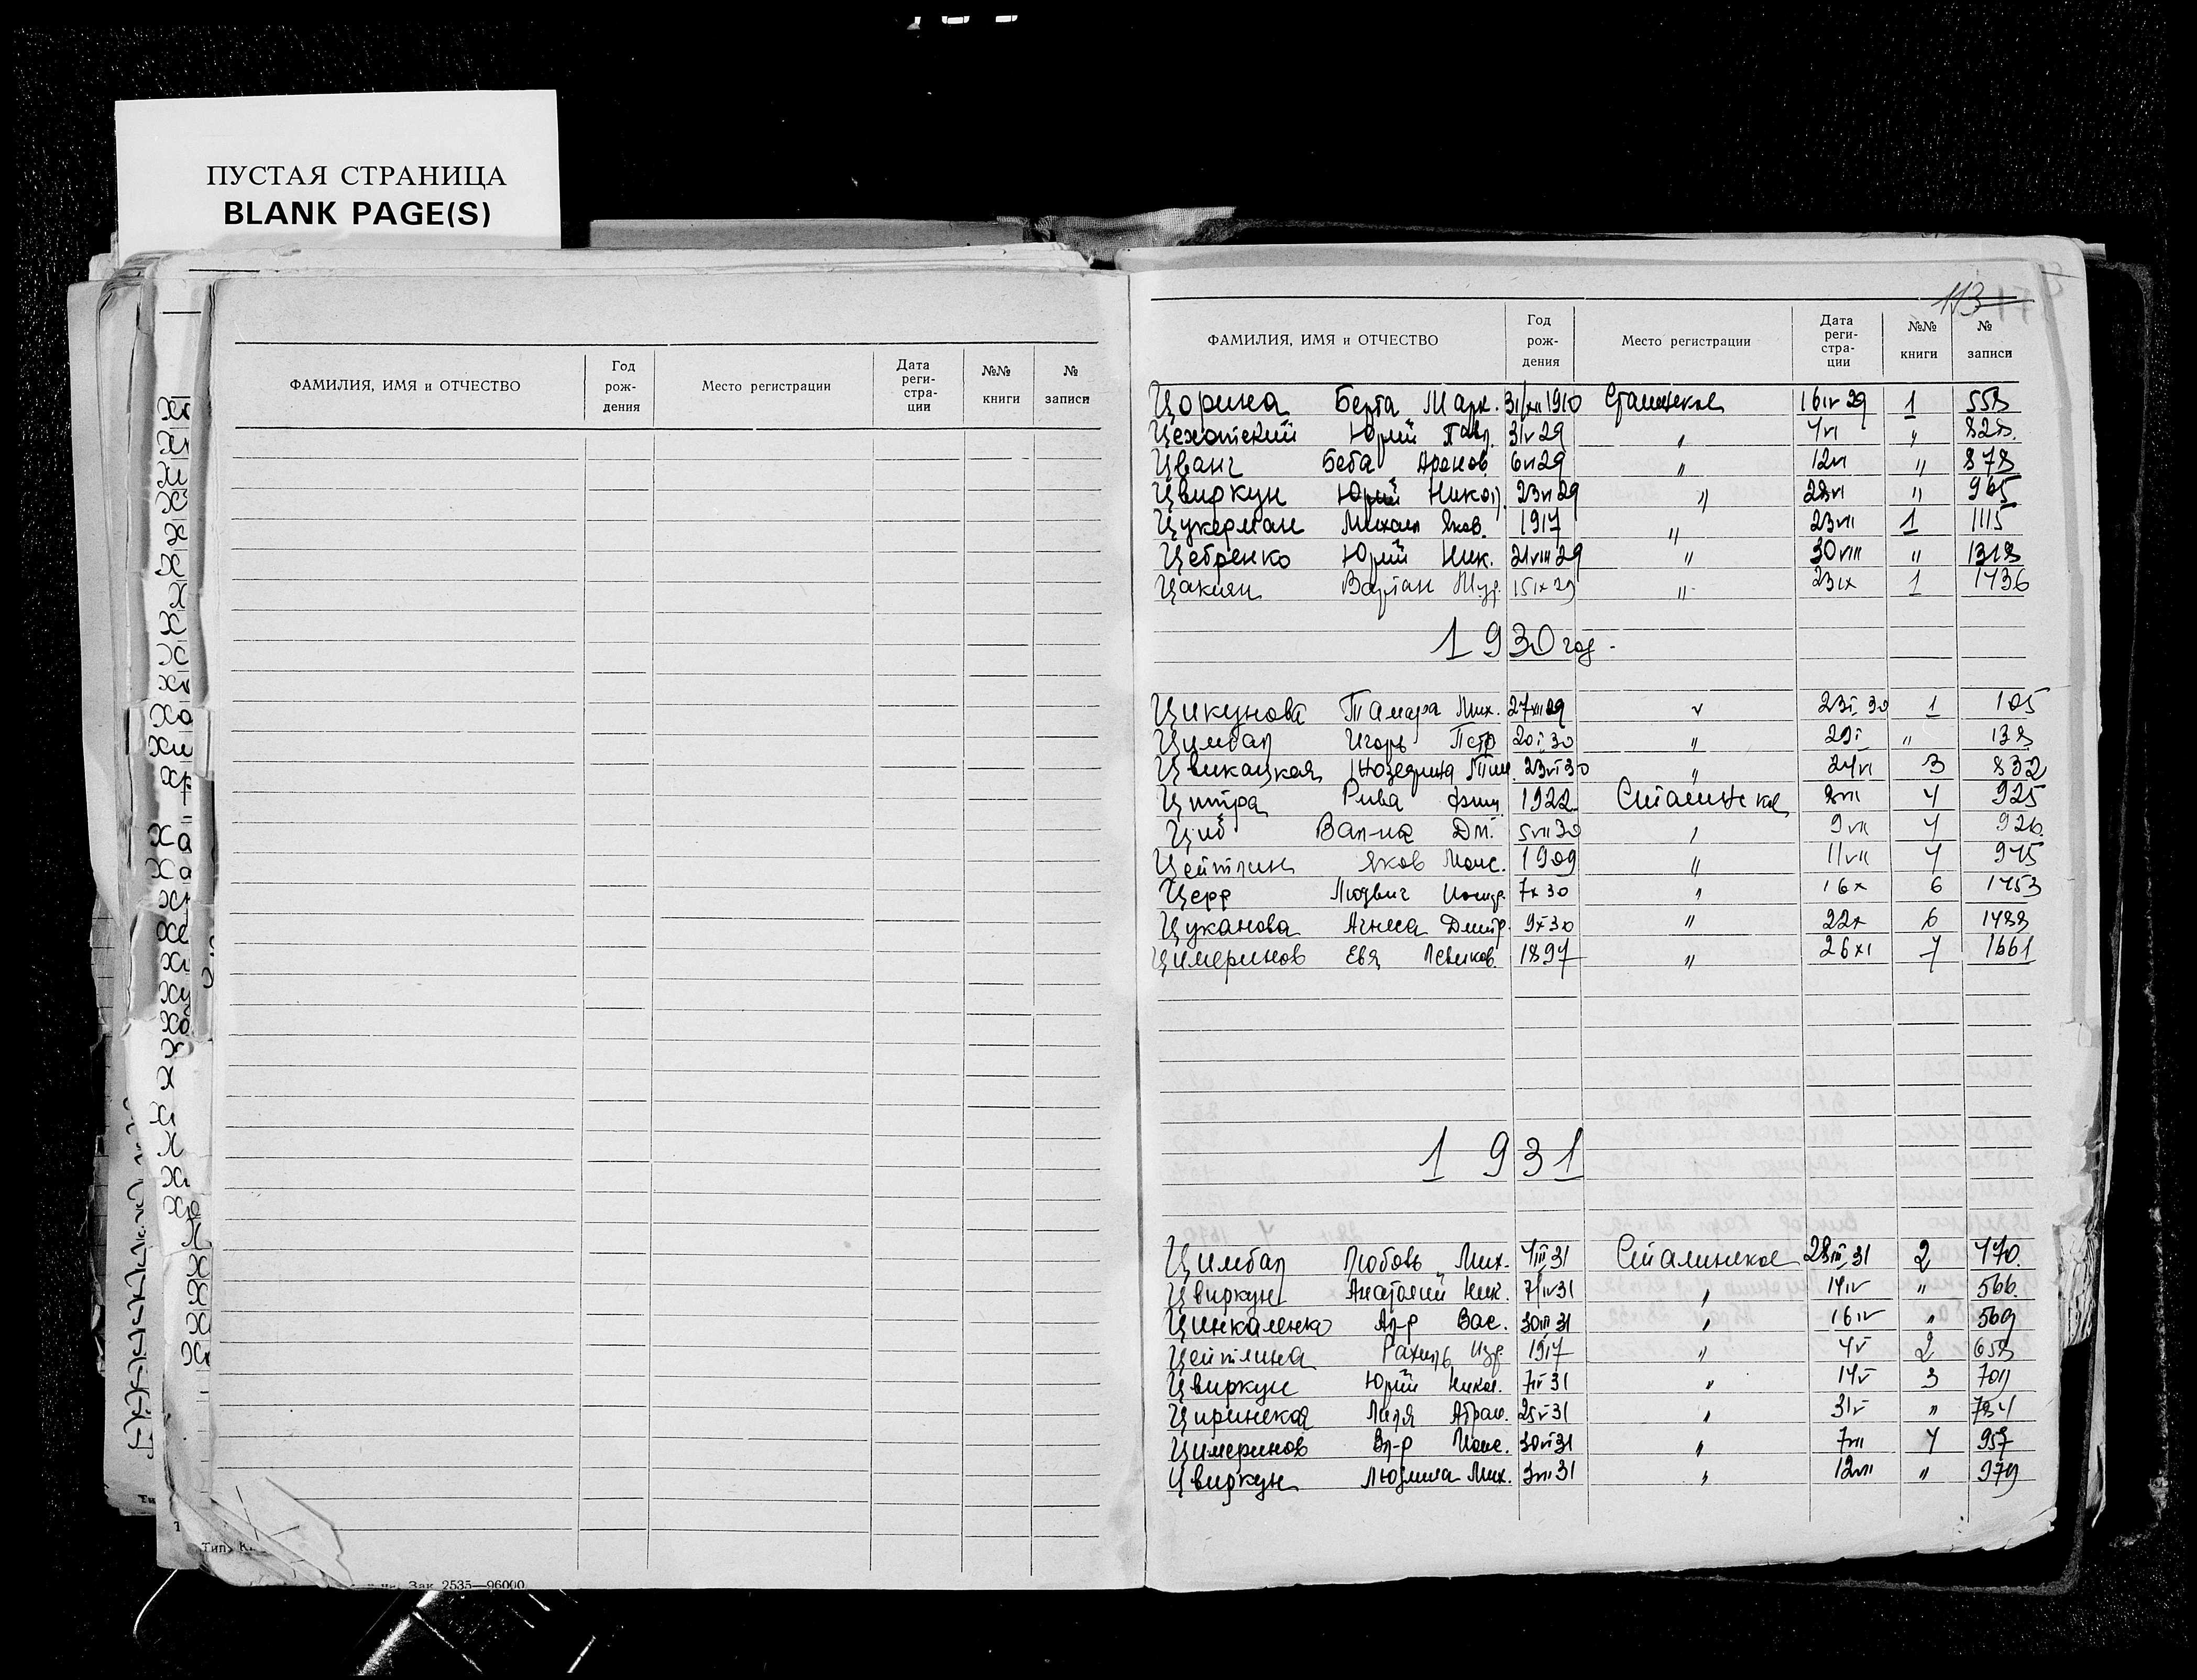 ПУСТАЯ СТРАНИЦА
BLANK PAGE(S)
ФАМИЛИЯ, ИМЯ и ОТЧЕСТВО Год рож- дения Место регистрации Дата реги- стра- ции №№ книги № записи
113
ФАМИЛИЯ, ИМЯ и ОТЧЕСТВО Год рож- дения Место регистрации Дата реги- стра- ции №№ книги № записи
Цорина Берта Марк. 31/XII 1910 Сталинское 16 IV 29 1 558
Цехотский Юрий Павл. 31 V 29 " 4 VI " 828.
Цванг Беба Аронов. 6 VI 29 " 12 VI " 878
Цвиркун Юрий Никол. 23 VI 29 " 28 VI " 965
Цукерман Михаил Яков. 1917 " 23 VII 1 1115
Цебренко Юрий Ник. 21 VIII 29 " 30 VIII " 1318
Цакиян Вартан 15 IX 29 " 23 IX 1 1436
1930 год.
Цикунова Тамара Мих. 27 XII 29 " 23 I 30 1 105
Цимбал Игорь Петр 20 I 30 " 29 I " 138
Цвикацкая Тим. 23 VI 30 " 24 VI 3 832
Цитра Рива 1922 Сталинское 8 VII 4 925
Циб Вал-на Дм. 5 VII 30 " 9 VII 4 926.
Цейтлин Яков Моис. 1909 " 11 VII 4 945
Церр Людвиг 7 X 30 " 16 X 6 1453
Цуканова Агнеса Дмитр. 9 X 30 " 22 X 6 1488
Цимеринов Евя 1897 " 26 XI 7 1661
1931
Цимбал Любовь Мих. 4 III 31 Сталинское 28 III 31 2 470.
Цвиркун Анатолий Ник. 7 IV 31 " 14 IV " 566.
Цинкаленко Ал-р Вас. 30 III 31 " 16 IV " 569
Цейтлина Рахиль Изр. 1917 " 4 V 2 658
Цвиркун Юрий Никол. 7 IV 31 " 14 V 3 709
Циринская Лиля Абрам. 25 V 31 " 31 V " 784
Цимеринов Вл-р Моис. 30 VI 31 " 7 VII 4 957
Цвиркун Людмила Мих. 3 VII 31 " 12 VII " 979
Зак. 2535—96000